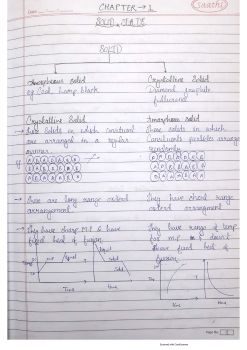 Saathi
CHAPTER → 1
SOLID STATE
SOLID
Amorphous solid
Crystalline Solid
eg Coal, Lamp black
Diamond, graphite
fullerene
Crystalline Solid
Amorphous solid
→ solids in which constituent
These solids in which
are arranged in a regular
Constituents particles arrange
manner
randomly
→ There are long range
They have short range
arrangement
arrangement
→ They have sharp M.P & have
They have range of temp
fixed heat of fusion
for M.P & doesn't
have fixed heat of
fusion
Liquid
Liquid
Solid
Solid
Time
Time
Page No.
Scanned with CamScanner